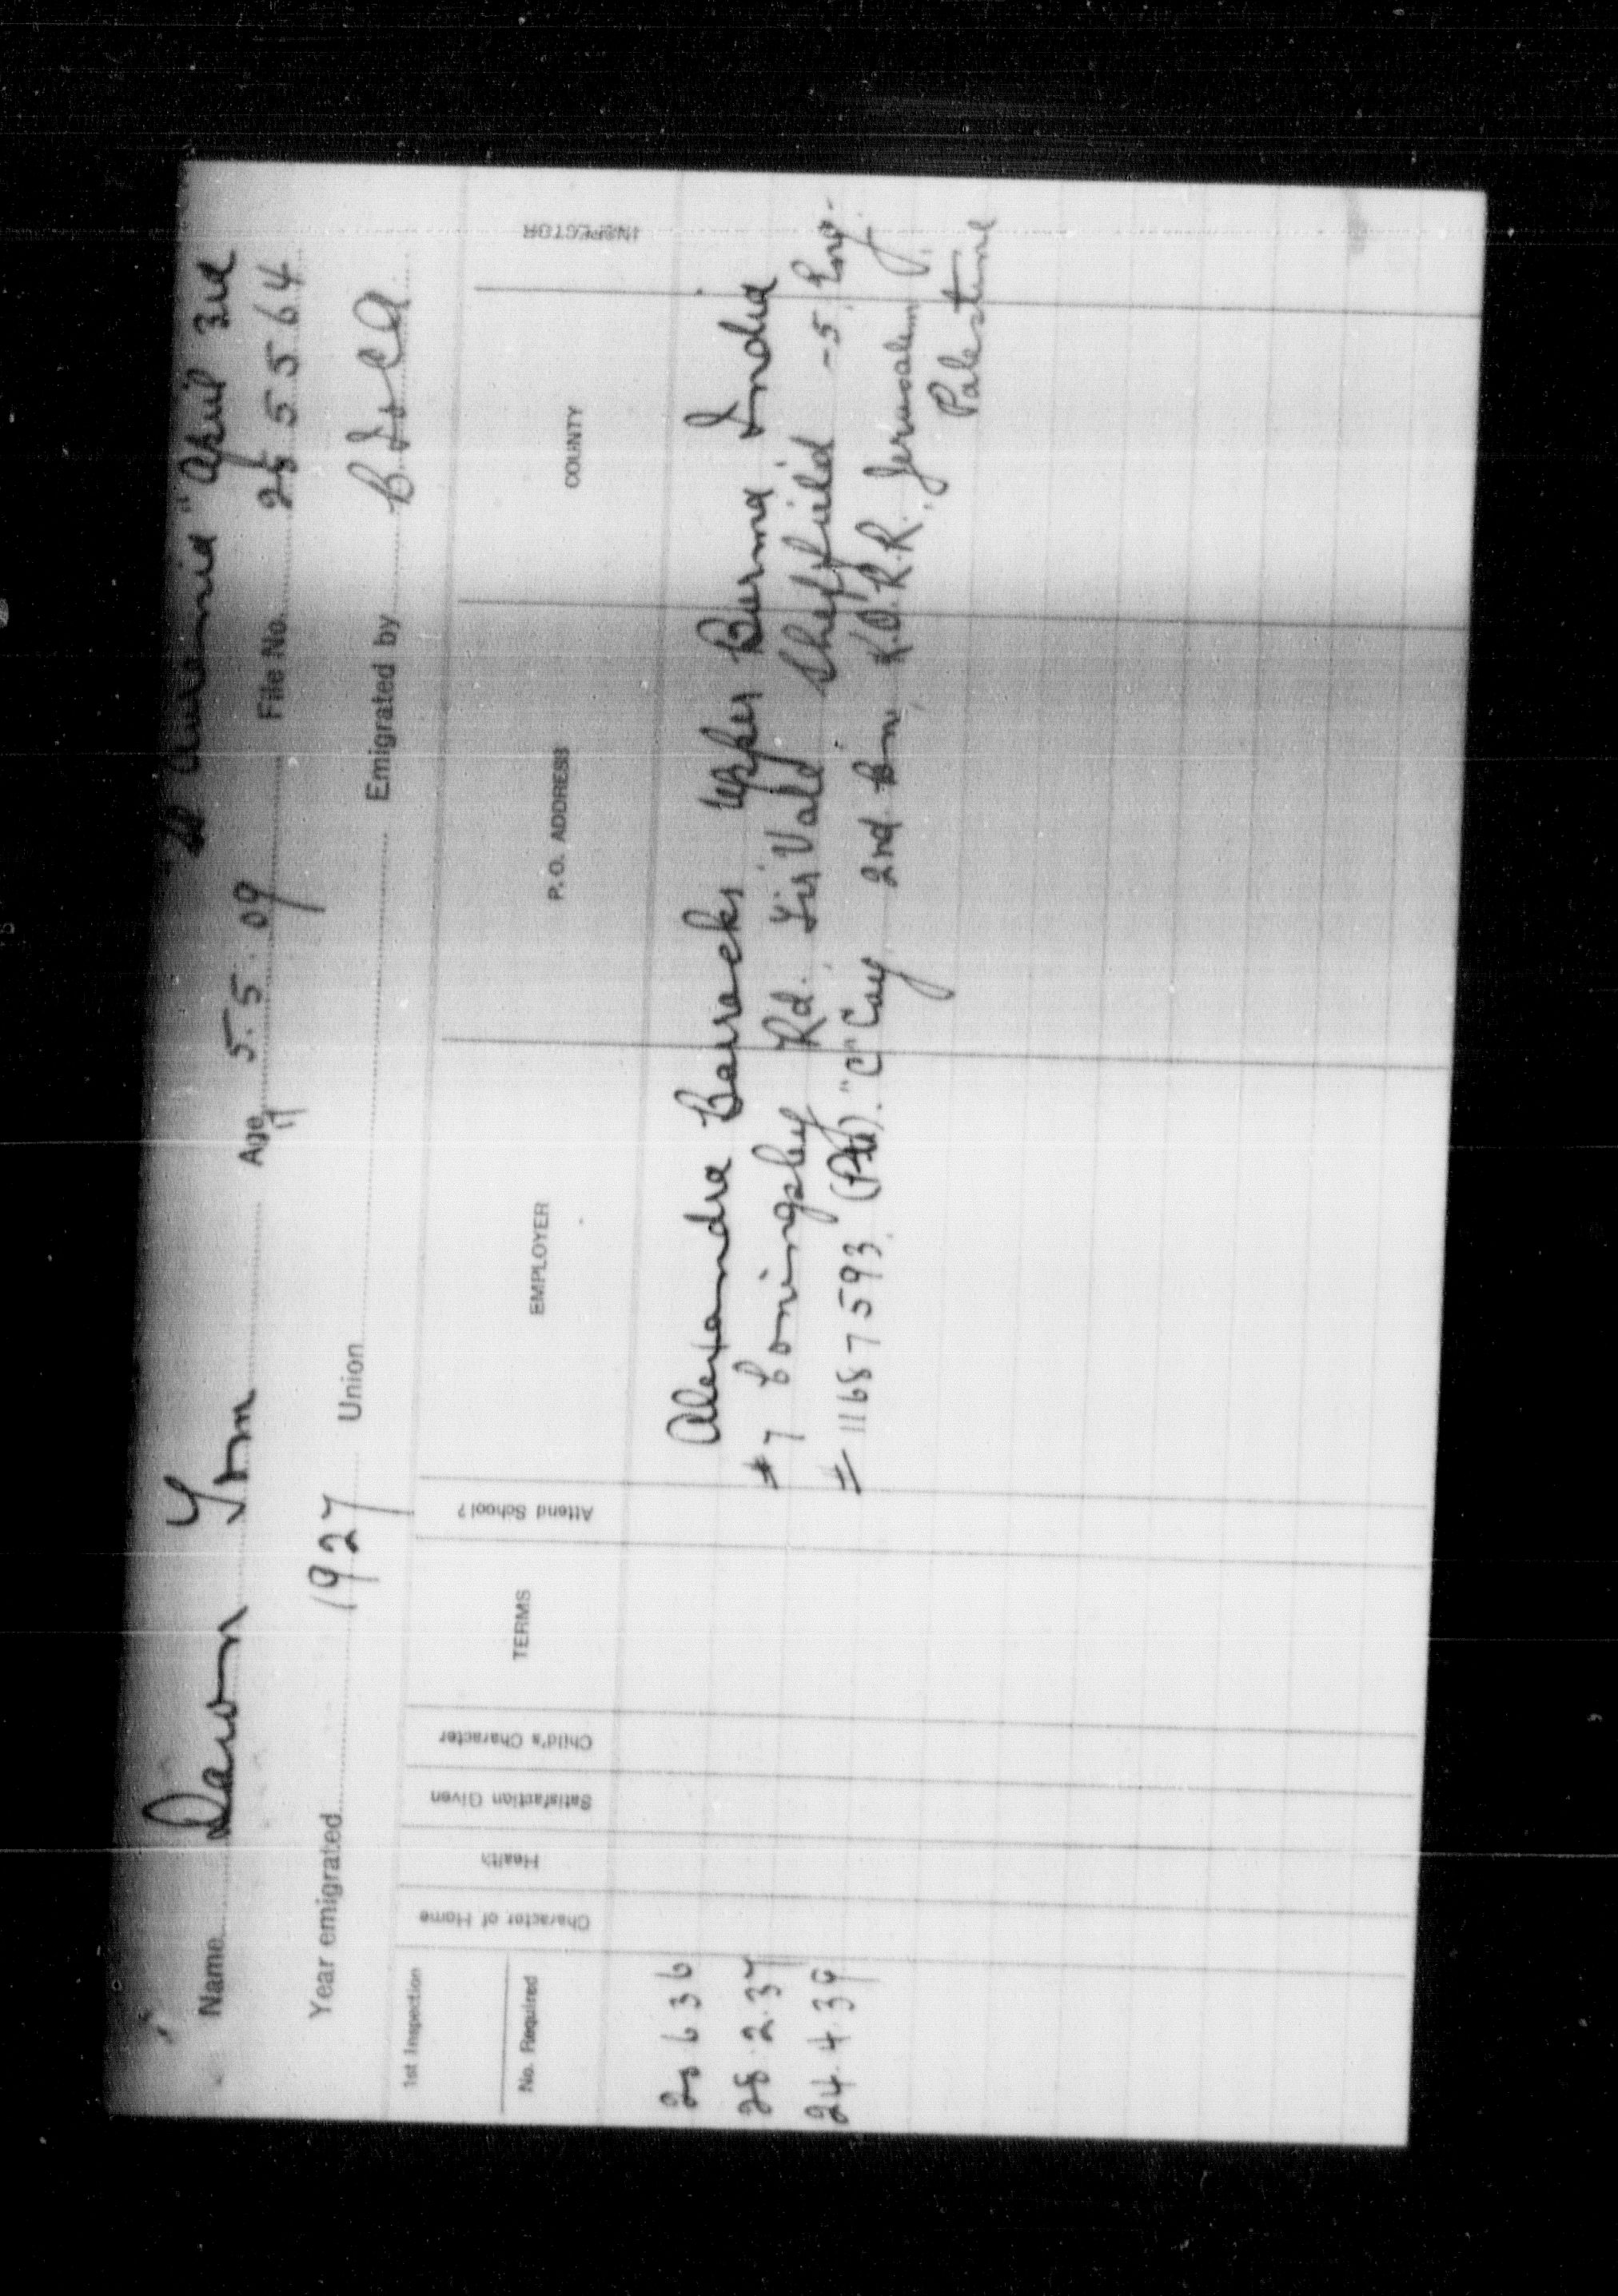 "Aurania" April 3rd
Name Dawson Tom Age 5.5.09 File No. 255564
17
Year emigrated 1927 Union Emigrated by
1st Inspection
No. Required Character of Home Health Satisfaction Given Child's Character TERMS Attend School? EMPLOYER P. O. ADDRESS COUNTY INSPECTOR
20 6 36 Alexandra Barracks Upper Burma India
28.2.37 #7 Coningsby Rd. Fir Vale Sheffield -5, Eng.
24.4.39 # 11687593 (Pte). "C" Coy 2nd Bn K.O.R.R. Jerusalem
Palestine